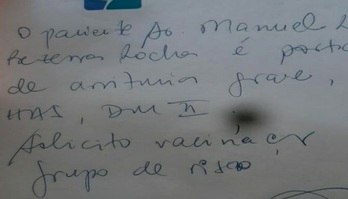 O paciente Ao. Manuel
Bezerra Rocha é porta
de arritmia grave,
HAS, DM II
Solicito vacinaçar
grupo de risco